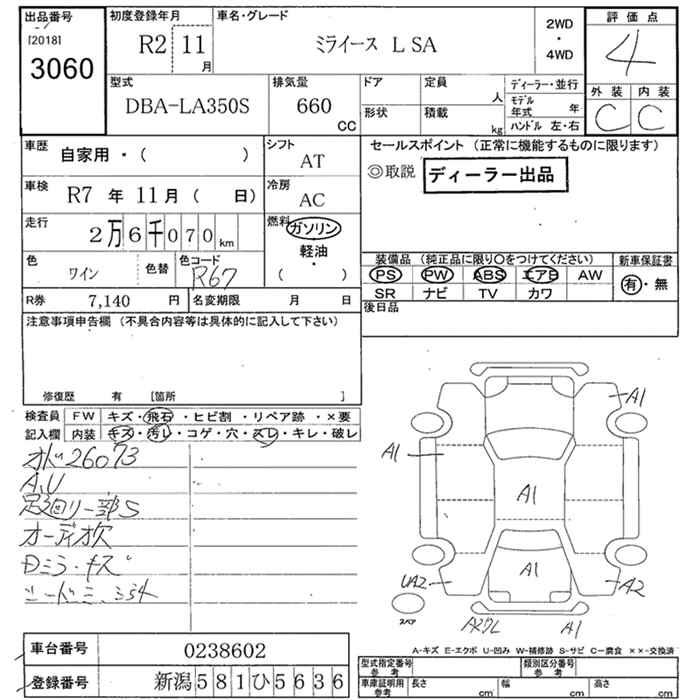 出品番号
[2018]
3060
初度登録年月
R2 11 月
車名・グレード
ミライース L SA
2WD
・
4WD
評価点
4
外装 内装
C C
型式
DBA-LA350S
排気量
660 CC
ドア
形状
定員 人
積載 kg
ディーラー・並行
モデル年式 年
ハンドル 左・右
車歴
自家用・( )
シフト
AT
車検
R7 年 11月 ( 日)
冷房
AC
走行
2万6千070 km
燃料
ガソリン
軽油
・
( )
色
ワイン
色替
色コード
R67
R券 7,140 円
名変期限 月 日
セールスポイント (正常に機能するものに限ります)
◎取説 ディーラー出品
装備品 (純正品に限り○をつけてください)
PS PW ABS エアB AW
SR ナビ TV カワ
新車保証書
有・無
後日品
注意事項申告欄 (不具合内容等は具体的に記入して下さい)
修復歴 有 [箇所 ]
検査員
記入欄
FW キズ・飛石・ヒビ割・リペア跡・×要
内装 キズ・汚レ・コゲ・穴・スレ・キレ・破レ
オドメ26073
A,U
足廻リ一部S
オーディオ欠
Dミラーキズ
A1
A1
A1
A1
UA2
A2
A1
スペア
A-キズ E-エクボ U-凹み W-補修跡 S-サビ C-腐食 ××-交換済
車台番号 0238602
登録番号 新潟581ひ5636
型式指定番号
参考
類別区分番号
参考
車庫証明用
参考
長さ cm 幅 cm 高さ cm